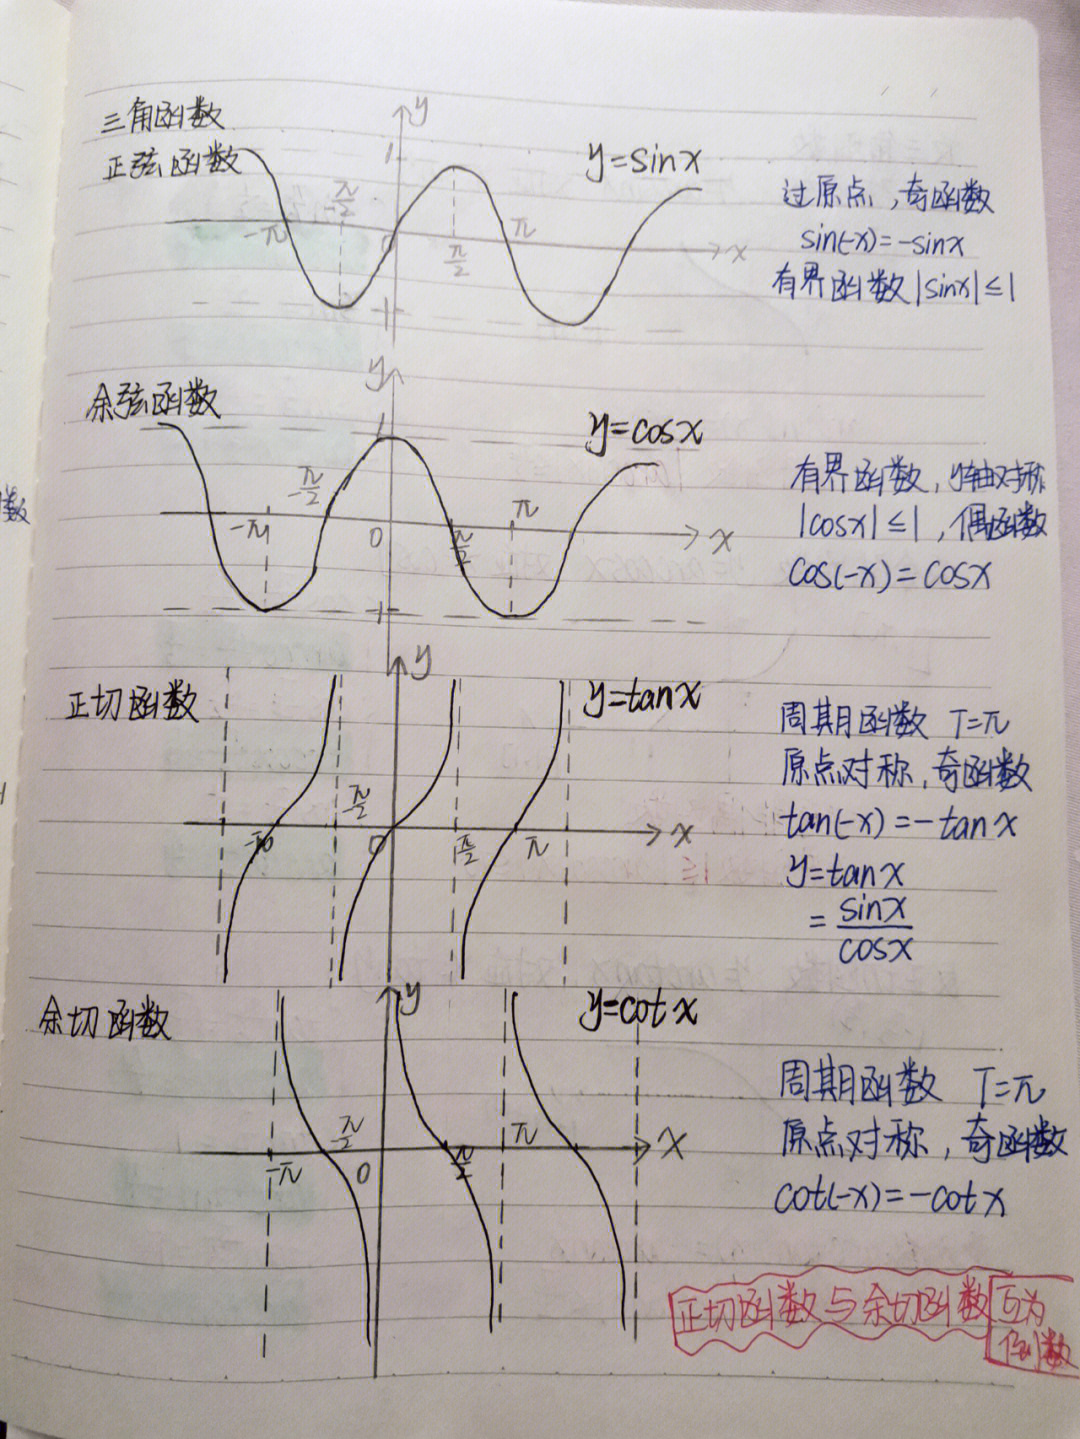 三角函数
正弦函数
y
1
y=sinx
-π
-π/2
0
π/2
π
x
-1
过原点,奇函数
sin(-x)=-sinx
有界函数|sinx|≤1
余弦函数
y
1
y=cosx
-π
-π/2
0
π/2
π
x
-1
有界函数,y轴对称
|cosx|≤1,偶函数
cos(-x)=cosx
正切函数
y
y=tanx
-π
-π/2
0
π/2
π
x
周期函数 T=π
原点对称,奇函数
tan(-x)=-tanx
y=tanx
=sinx/cosx
余切函数
y
y=cotx
-π
-π/2
0
π/2
π
x
周期函数 T=π
原点对称,奇函数
cot(-x)=-cotx
正切函数与余切函数互为
倒数